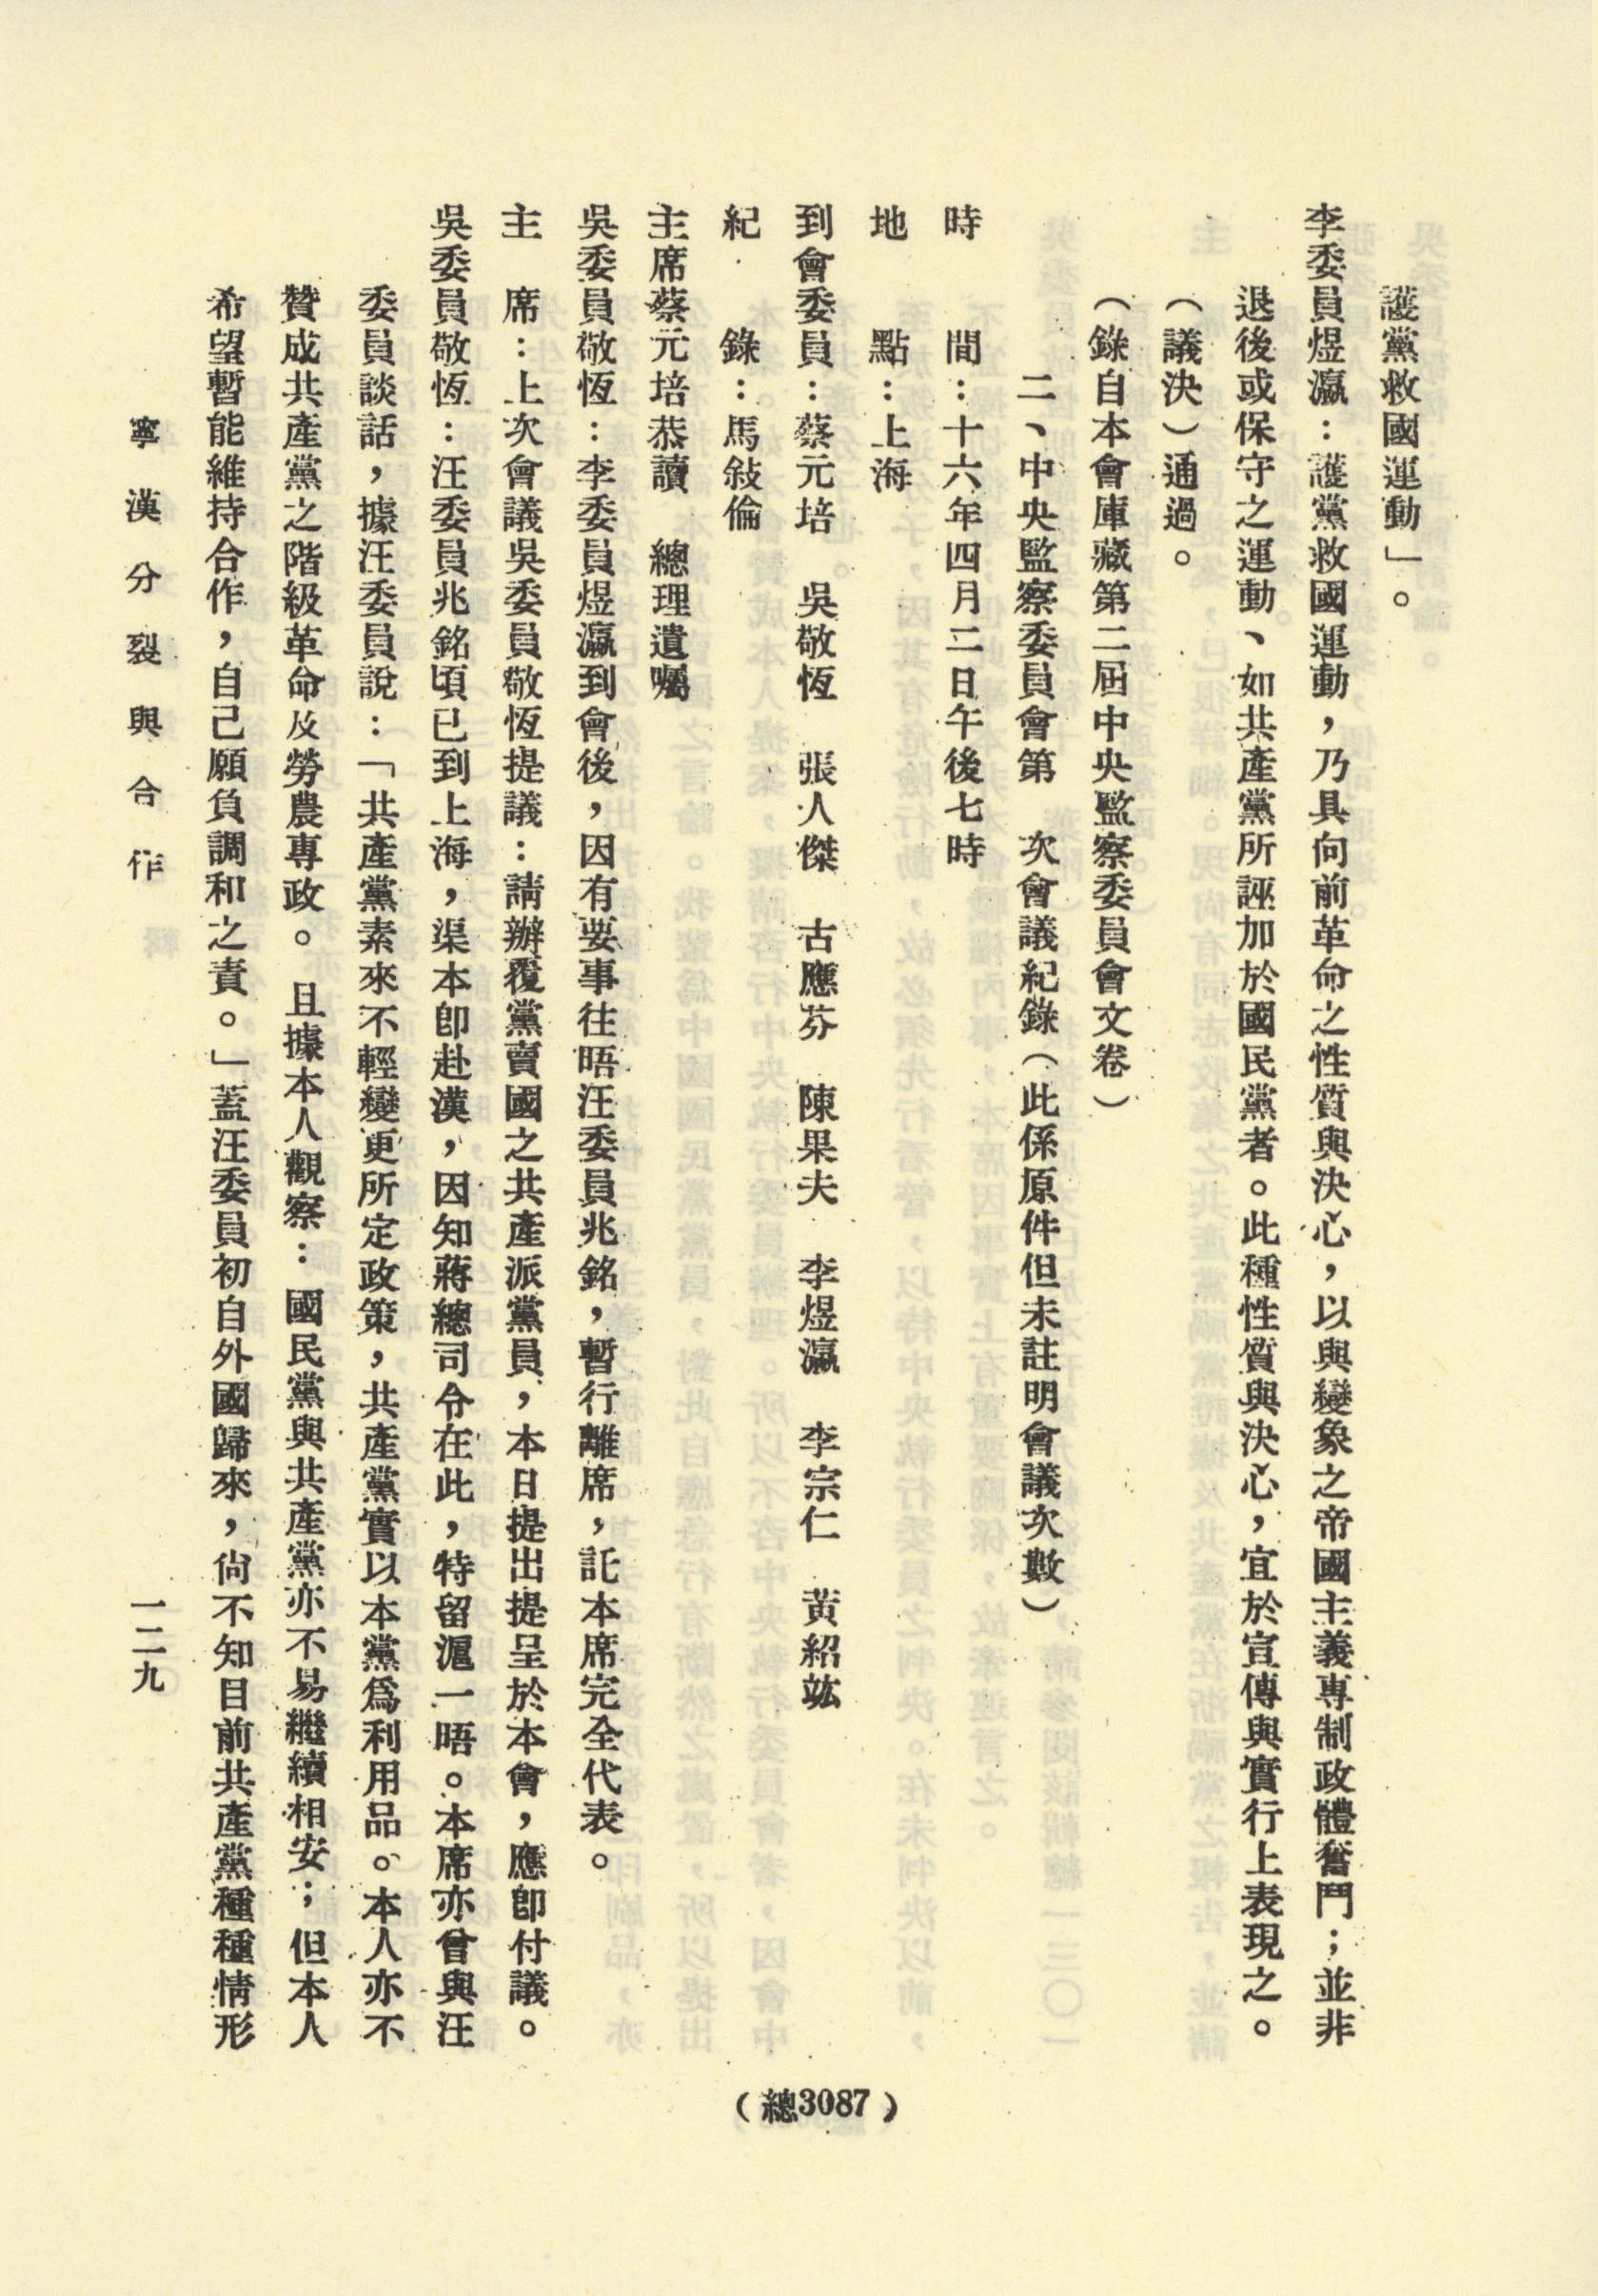 護黨救國運動」。
李委員煜瀛：護黨救國運動，乃具向前革命之性質與決心，以與變象之帝國主義專制政體奮鬥；並非
退後或保守之運動、如共產黨所誣加於國民黨者。此種性質與決心，宜於宣傳與實行上表現之。
（議決）通過。
（錄自本會庫藏第二屆中央監察委員會文卷）
二、中央監察委員會第　次會議紀錄（此係原件但未註明會議次數）
時　　間：十六年四月二日午後七時
地　　點：上海
到會委員：蔡元培　吳敬恆　張人傑　古應芬　陳果夫　李煜瀛　李宗仁　黃紹竑
紀　　錄：馬敍倫
主席蔡元培恭讀　總理遺囑
吳委員敬恆：李委員煜瀛到會後，因有要事往晤汪委員兆銘，暫行離席，託本席完全代表。
主　席：上次會議吳委員敬恆提議：請辦覆黨賣國之共產派黨員，本日提出提呈於本會，應卽付議。
吳委員敬恆：汪委員兆銘頃已到上海，渠本卽赴漢，因知蔣總司令在此，特留滬一晤。本席亦曾與汪
委員談話，據汪委員說：「共產黨素來不輕變更所定政策，共產黨實以本黨爲利用品。本人亦不
贊成共產黨之階級革命及勞農專政。且據本人觀察：國民黨與共產黨亦不易繼續相安；但本人
希望暫能維持合作，自己願負調和之責。」蓋汪委員初自外國歸來，尙不知目前共產黨種種情形
寧漢分裂與合作
一二九
（總3087）